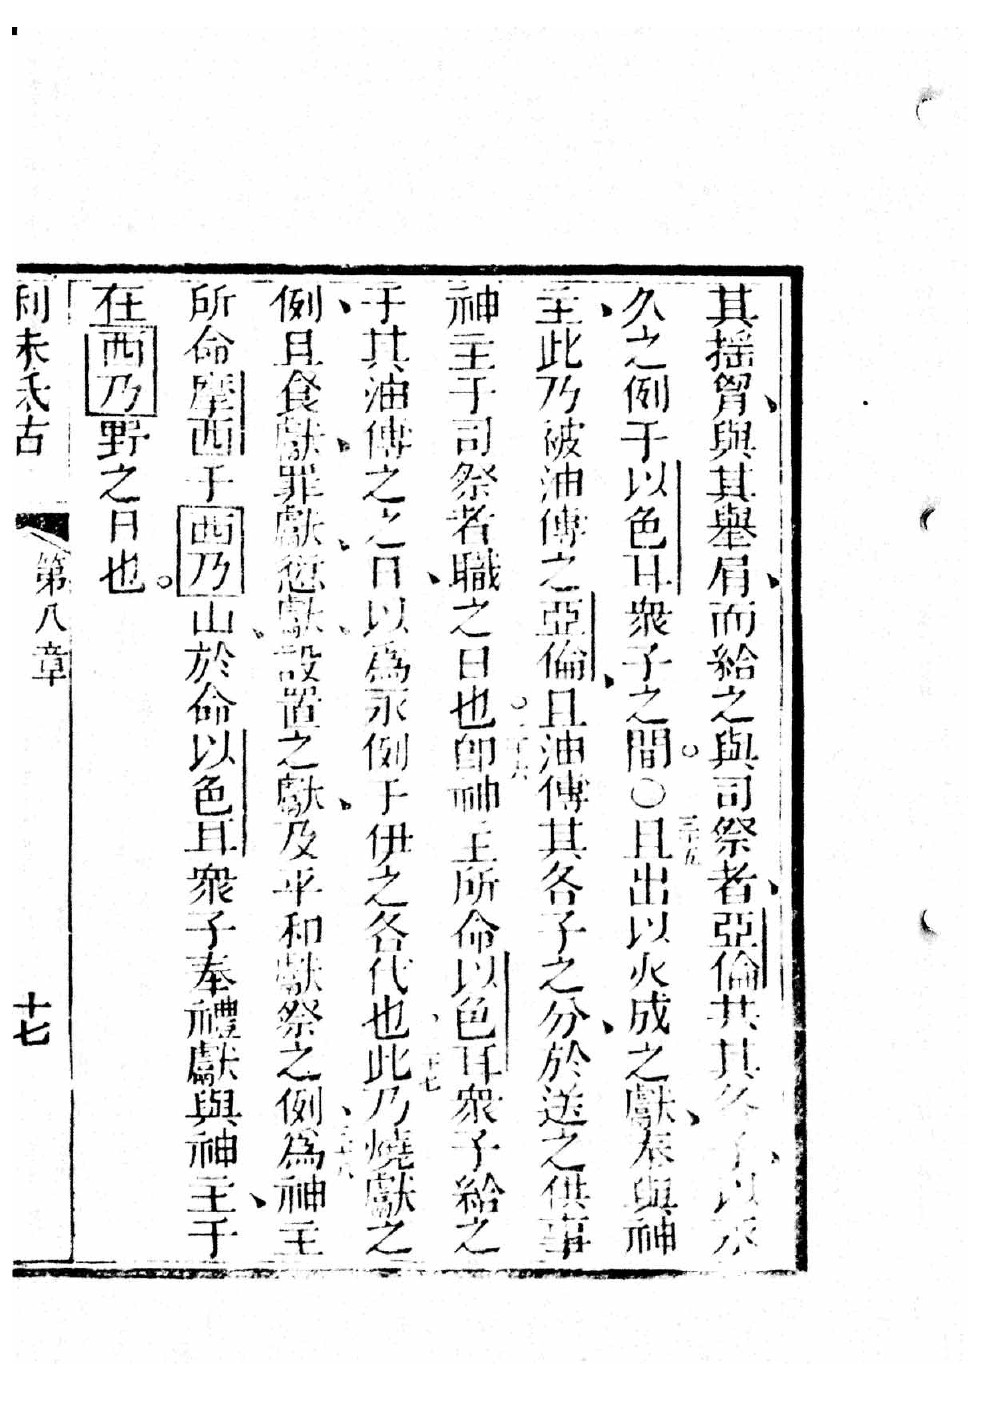 其搖胷與其舉肩而給之與司祭者亞倫共其各子以永
久之例于以色耳衆子之間〇三十五且出以火成之獻奉與神
主此乃被油傅之亞倫且油傅其各子之分於送之供事
神主于司祭者職之日也三十六即神主所命以色耳衆子給之
于其油傅之之日以為永例于伊之各代也三十七此乃燒獻之
例且食獻罪獻愆獻設置之獻及平和獻祭之例為三十八神主
所命摩西于西乃山於命以色耳衆子奉禮獻與神主于
在西乃野之日也。
利未氏古
第八章
十七